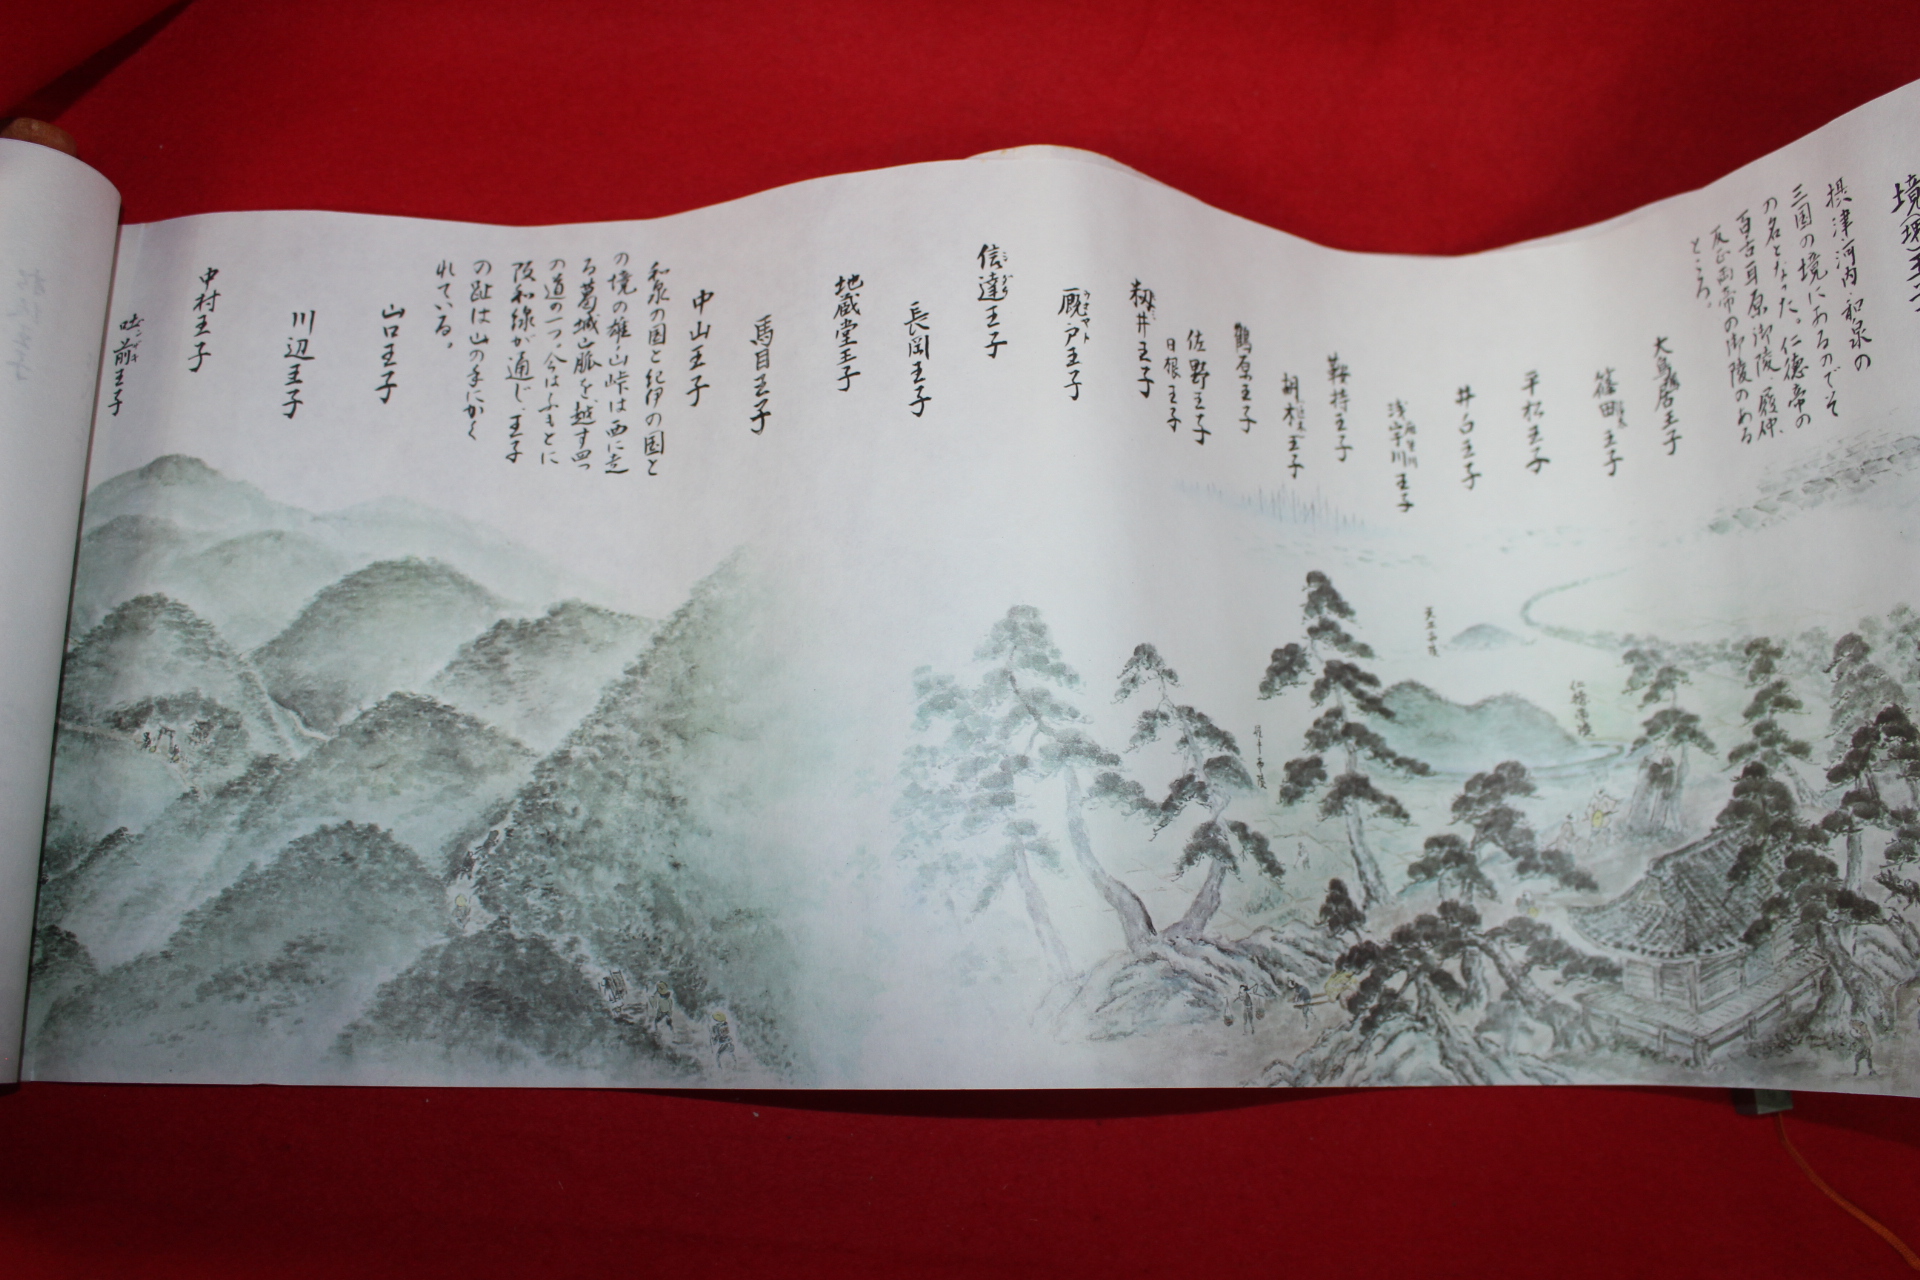 境(堺)王子
摂津、河内、和泉の
三国の境にあるのでそ
の名となった。仁徳帝の
百舌耳原御陵、履仲、
反正両帝の御陵のある
ところ。
大鳥居王子
篠田王子
平松王子
井口王子
浅宇川王子
鞍持王子
胡木王子
鶴原王子
佐野王子
日根王子
籾井王子
厩戸王子
ウマヤト
信達王子
シンダチ
長岡王子
地蔵堂王子
馬目王子
中山王子
和泉の国と紀伊の国と
の境の雄ノ山峠は西に走
る葛城山脈を越す四つ
の道の一つ。今はふもとに
阪和線が通じ、王子
の趾は山の手にかく
れている。
山口王子
川辺王子
中村王子
吐前王子
仁徳帝陵